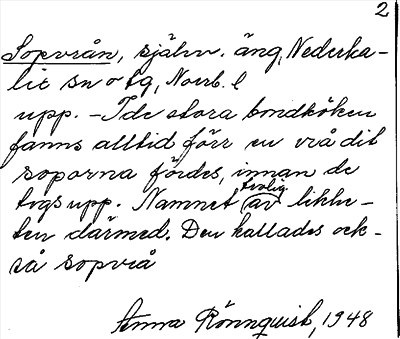 2
Sopvrån, självn. äng, Nederka-
lix sn o tg, Norrb. l
upp. - I de stora bondköken
fanns alltid förr en vrå dit
soporna fördes, innan de
togs upp. Namnet trolig av likhe-
ten därmed. Den kallades ock-
så sopvrå
Anna Rönnquist, 1948